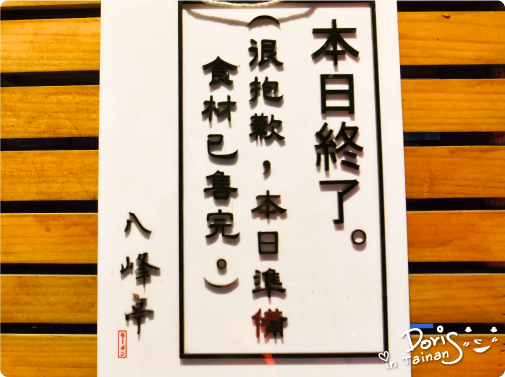 本日終了。
(很抱歉，本日準備
食材已售完。)
八峰亭
ラーメン
Doris
in Tainan